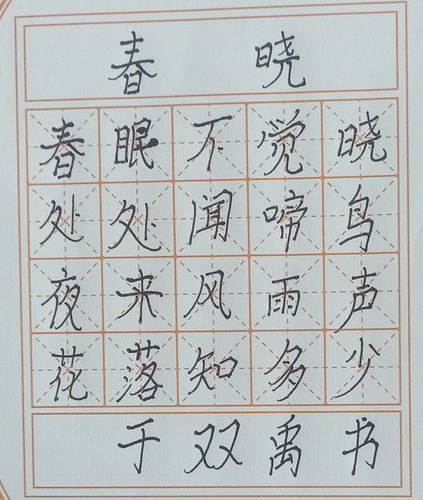 春晓
春眠不觉晓
处处闻啼鸟
夜来风雨声
花落知多少
于双禹书